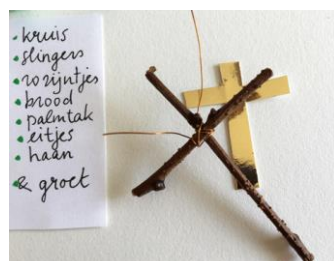 • kruis
• slingers
• rozijntjes
• brood
• palmtak
• eitjes
• haan
& groet